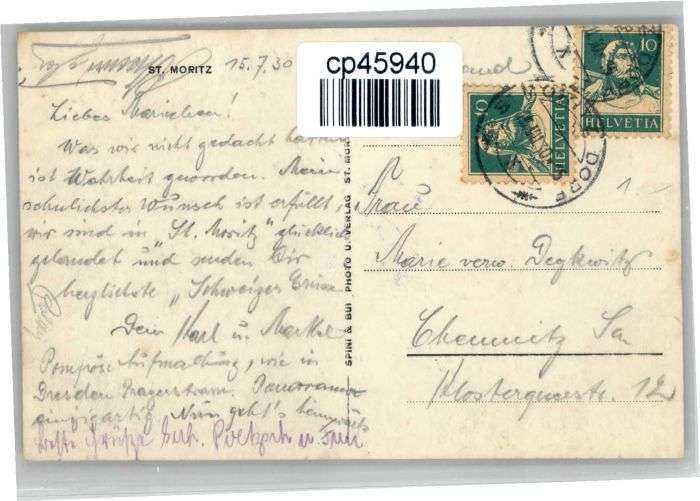 ST. MORITZ 15.7.30
cp45940
10
HELVETIA
10
HELVETIA
DORF
Liebes Mariechen!
Was wir nicht gedacht hatten
ist Wahrheit geworden. Mein
sehnlichster Wunsch ist erfüllt
wir sind in St. Moritz glücklich
gelandet und senden Dir
herzlichste „Schweizer Grüsse
Dein Karl u.
Pompöse Aufmachung, wie in
Dresden Pragerstrasse. Panorama
einzigartig Nun geht's heimwärts
Frau
Marie verw Degkwitz
Chemnitz Sa
Klosterquerstr. 12
SPINI & BUI PHOTO U. VERLAG ST. MOR